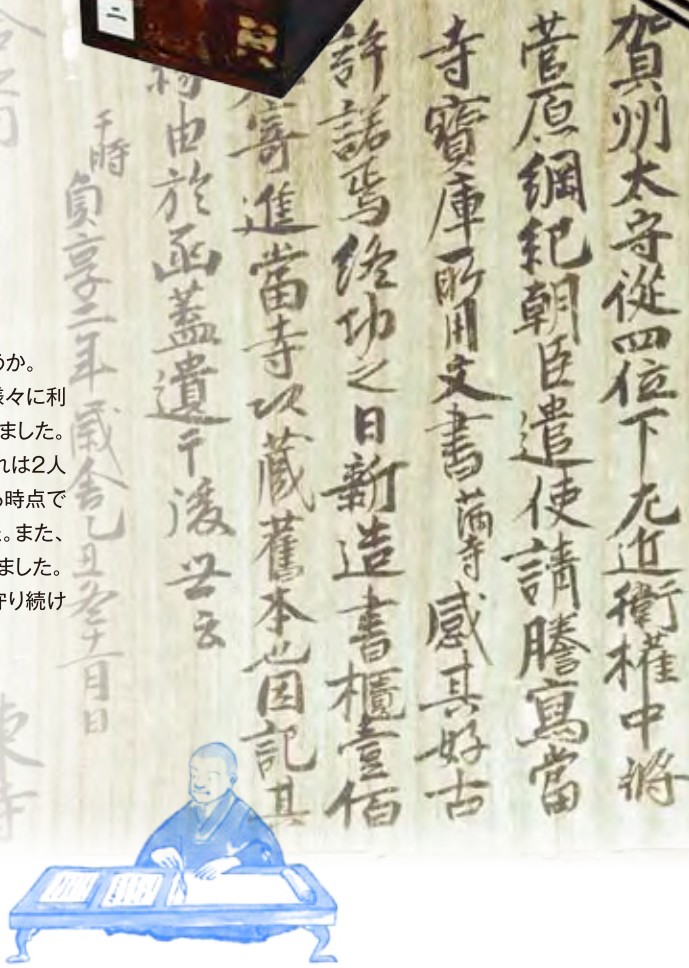 二
賀州太守從四位下左近衛權中將
菅原綱紀朝臣遣使請謄寫當
寺寶庫所用文書満寺感其好古
許諾焉終功之日新造書櫃壹佰
寄進當寺以蔵舊本也因記其
由於函蓋遺于後世云
于時
貞享二年歳舎乙丑冬十一月日
東寺
うか。
様々に利
ました。
れは2人
る時点で
。また、
ました。
守り続け